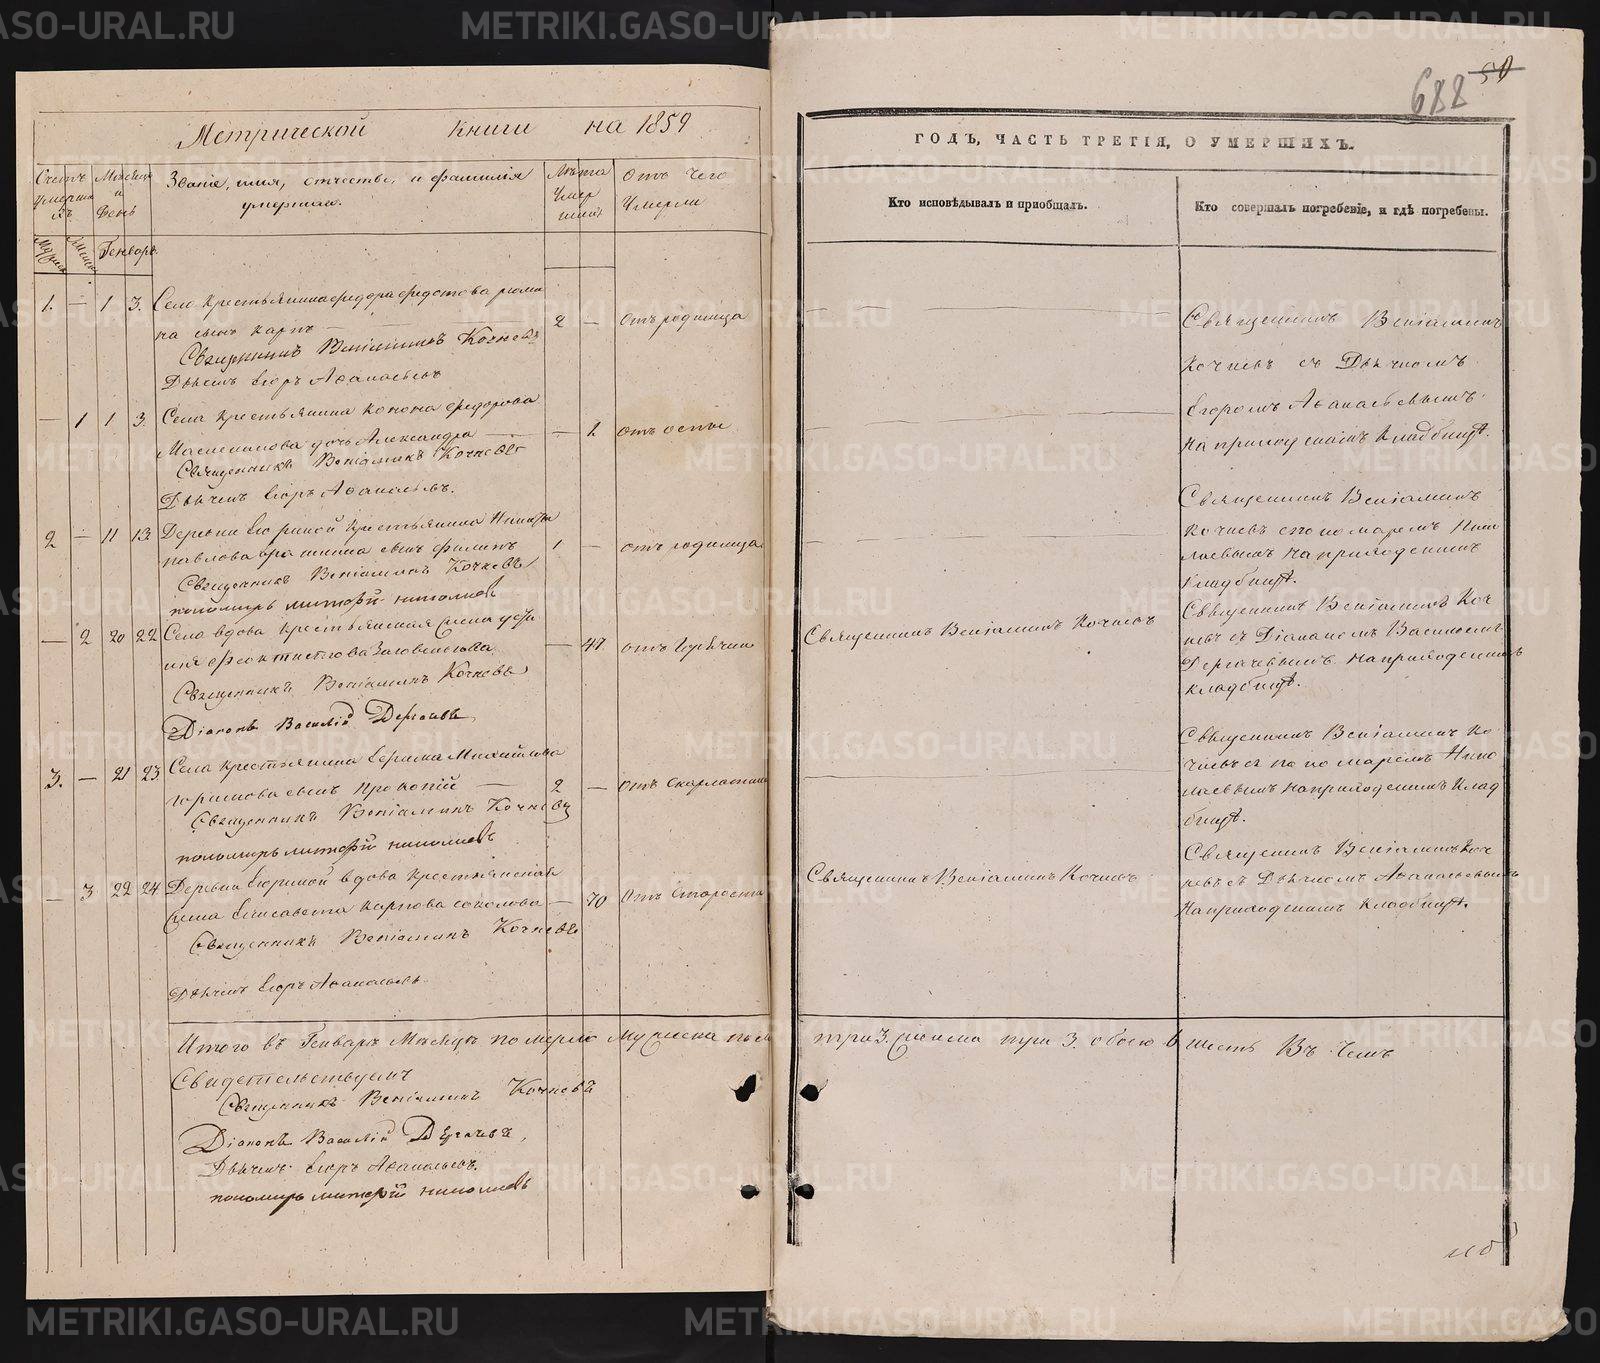 Метрической книги на 1859
Счетъ умерших
Месяцъ и день
Званіе, имя, отчество, и фамилія умершаго.
Лѣта умершаго
Отъ чего умерли
Мужеска
Женска
Генварь
1. — 1 3. Села крестьянина Федора Федотова
на сынъ Карпъ — 2 — отъ родимца
Священникъ Веніаминъ Кочневъ
Дьячекъ Егоръ Аѳанасьевъ
— 1 1 3. Села крестьянина Конона Федорова
дочь Александра — 1 отъ оспы
Священникъ Веніаминъ Кочневъ
Дьячекъ Егоръ Аѳанасьевъ.
2 — 11 13. Деревни крестьянина Никиты
Павлова сынъ Филипъ 1 — отъ родимца
Священникъ Веніаминъ Кочневъ
пономарь Николаевъ
— 2 20 22 Села вдова крестьянская жена
Феоктистова — 47. отъ горячки
Священникъ Веніаминъ Кочневъ
Діаконъ Василій Дергачевъ
3. — 21 23. Села крестьянина Михайлова
сынъ Прокопій — 2 — отъ скарлатины
Священникъ Веніаминъ Кочневъ
пономарь Николаевъ
— 3 22 24 Деревни вдова крестьянская
жена Елисавета Карпова Соколова — 70 отъ старости
Священникъ Веніаминъ Кочневъ
Дьячекъ Егоръ Аѳанасьевъ.
Итого въ Генварѣ месяцѣ померло мужеска пола
Свидетельствуемъ
Священникъ Веніаминъ Кочневъ
Діаконъ Василій Дергачевъ,
Дьячекъ Егоръ Аѳанасьевъ.
пономарь Николаевъ
688 50
ГОДЪ, ЧАСТЬ ТРЕТІЯ, О УМЕРШИХЪ.
Кто исповѣдывалъ и пріобщалъ.
Кто совершалъ погребеніе, и гдѣ погребены.
Священникъ Веніаминъ
Кочневъ съ Дьячкомъ
Егоромъ Аѳанасьевымъ.
На приходскомъ кладбищѣ.
Священникъ Веніаминъ
Кочневъ съ пономаремъ Нико
лаевымъ на приходскомъ
кладбищѣ.
Священникъ Веніаминъ Кочневъ
Священникъ Веніаминъ Коч
невъ съ Діакономъ Василіемъ
Дергачевымъ на приходскомъ
кладбищѣ.
Священникъ Веніаминъ Ко
чневъ съ пономаремъ Нико
лаевымъ на приходскомъ клад
бищѣ.
Священникъ Веніаминъ Кочневъ
Священникъ Веніаминъ Коч
невъ съ Дьячкомъ Аѳанасьевымъ
На приходскомъ кладбищѣ.
три 3. женска три 3. обоего 6 шесть Въ чемъ
METRIKI.GASO-URAL.RU